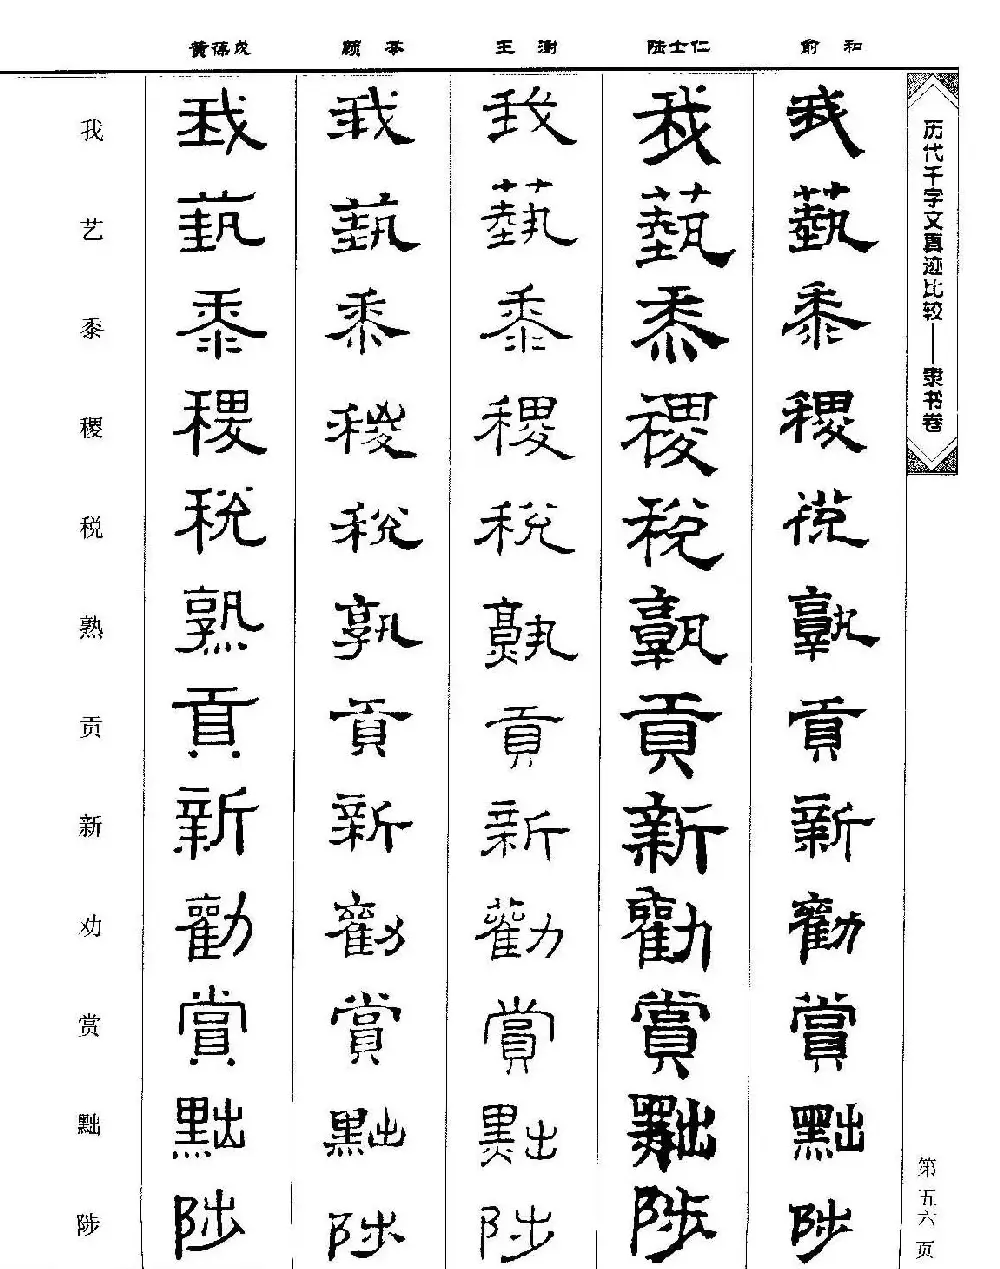 历代千字文真迹比较——隶书卷
第五六页
俞和
陆士仁
王澍
顾苓
黄葆戉
我 我 我 我 我 我
艺 藝 藝 藝 藝 藝
黍 黍 黍 黍 黍 黍
稷 稷 稷 稷 稷 稷
税 税 税 税 税 税
熟 熟 孰 孰 孰 孰
贡 貢 貢 貢 貢 貢
新 新 新 新 新 新
劝 勸 勸 勸 勸 勸
赏 賞 賞 賞 賞 賞
黜 黜 黜 黜 黜 黜
陟 陟 陟 陟 陟 陟